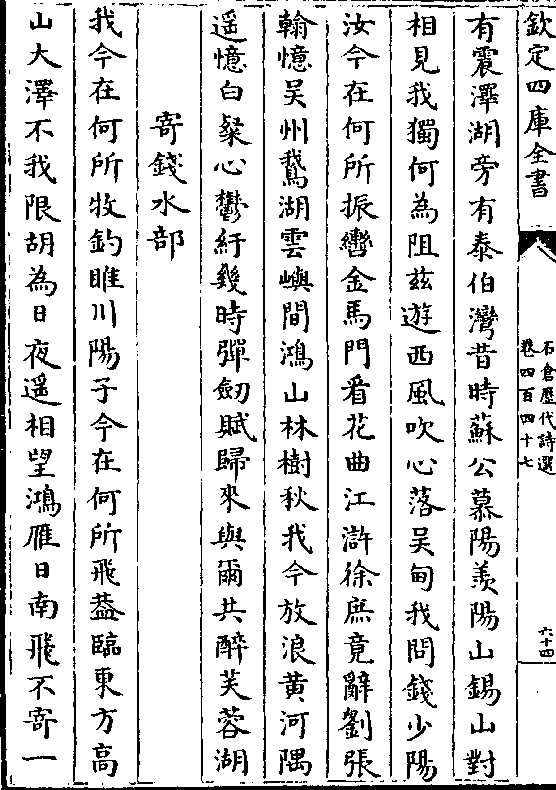 欽定四庫全書
石倉歷代詩選
卷四百四十七
六十四
有震澤湖旁有泰伯灣昔時蘇公慕陽羨陽山錫山對
相見我獨何為阻茲遊西風吹心落吴甸我問錢少陽
汝今在何所振轡金馬門看花曲江滸徐庶竟辭劉張
翰憶吴州鵞湖雲嶼間鴻山林樹秋我今放浪黄河隅
遥憶白粲心鬱紆幾時彈劒賦歸來與爾共醉芙蓉湖
寄錢水部
我今在何所牧釣睢川陽子今在何所飛葢臨東方高
山大澤不我限胡為日夜遥相望鴻雁日南飛不寄一